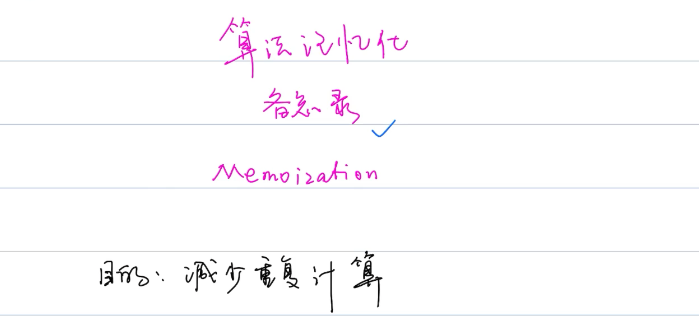 算法记忆化
备忘录
Memoization
目的：减少重复计算